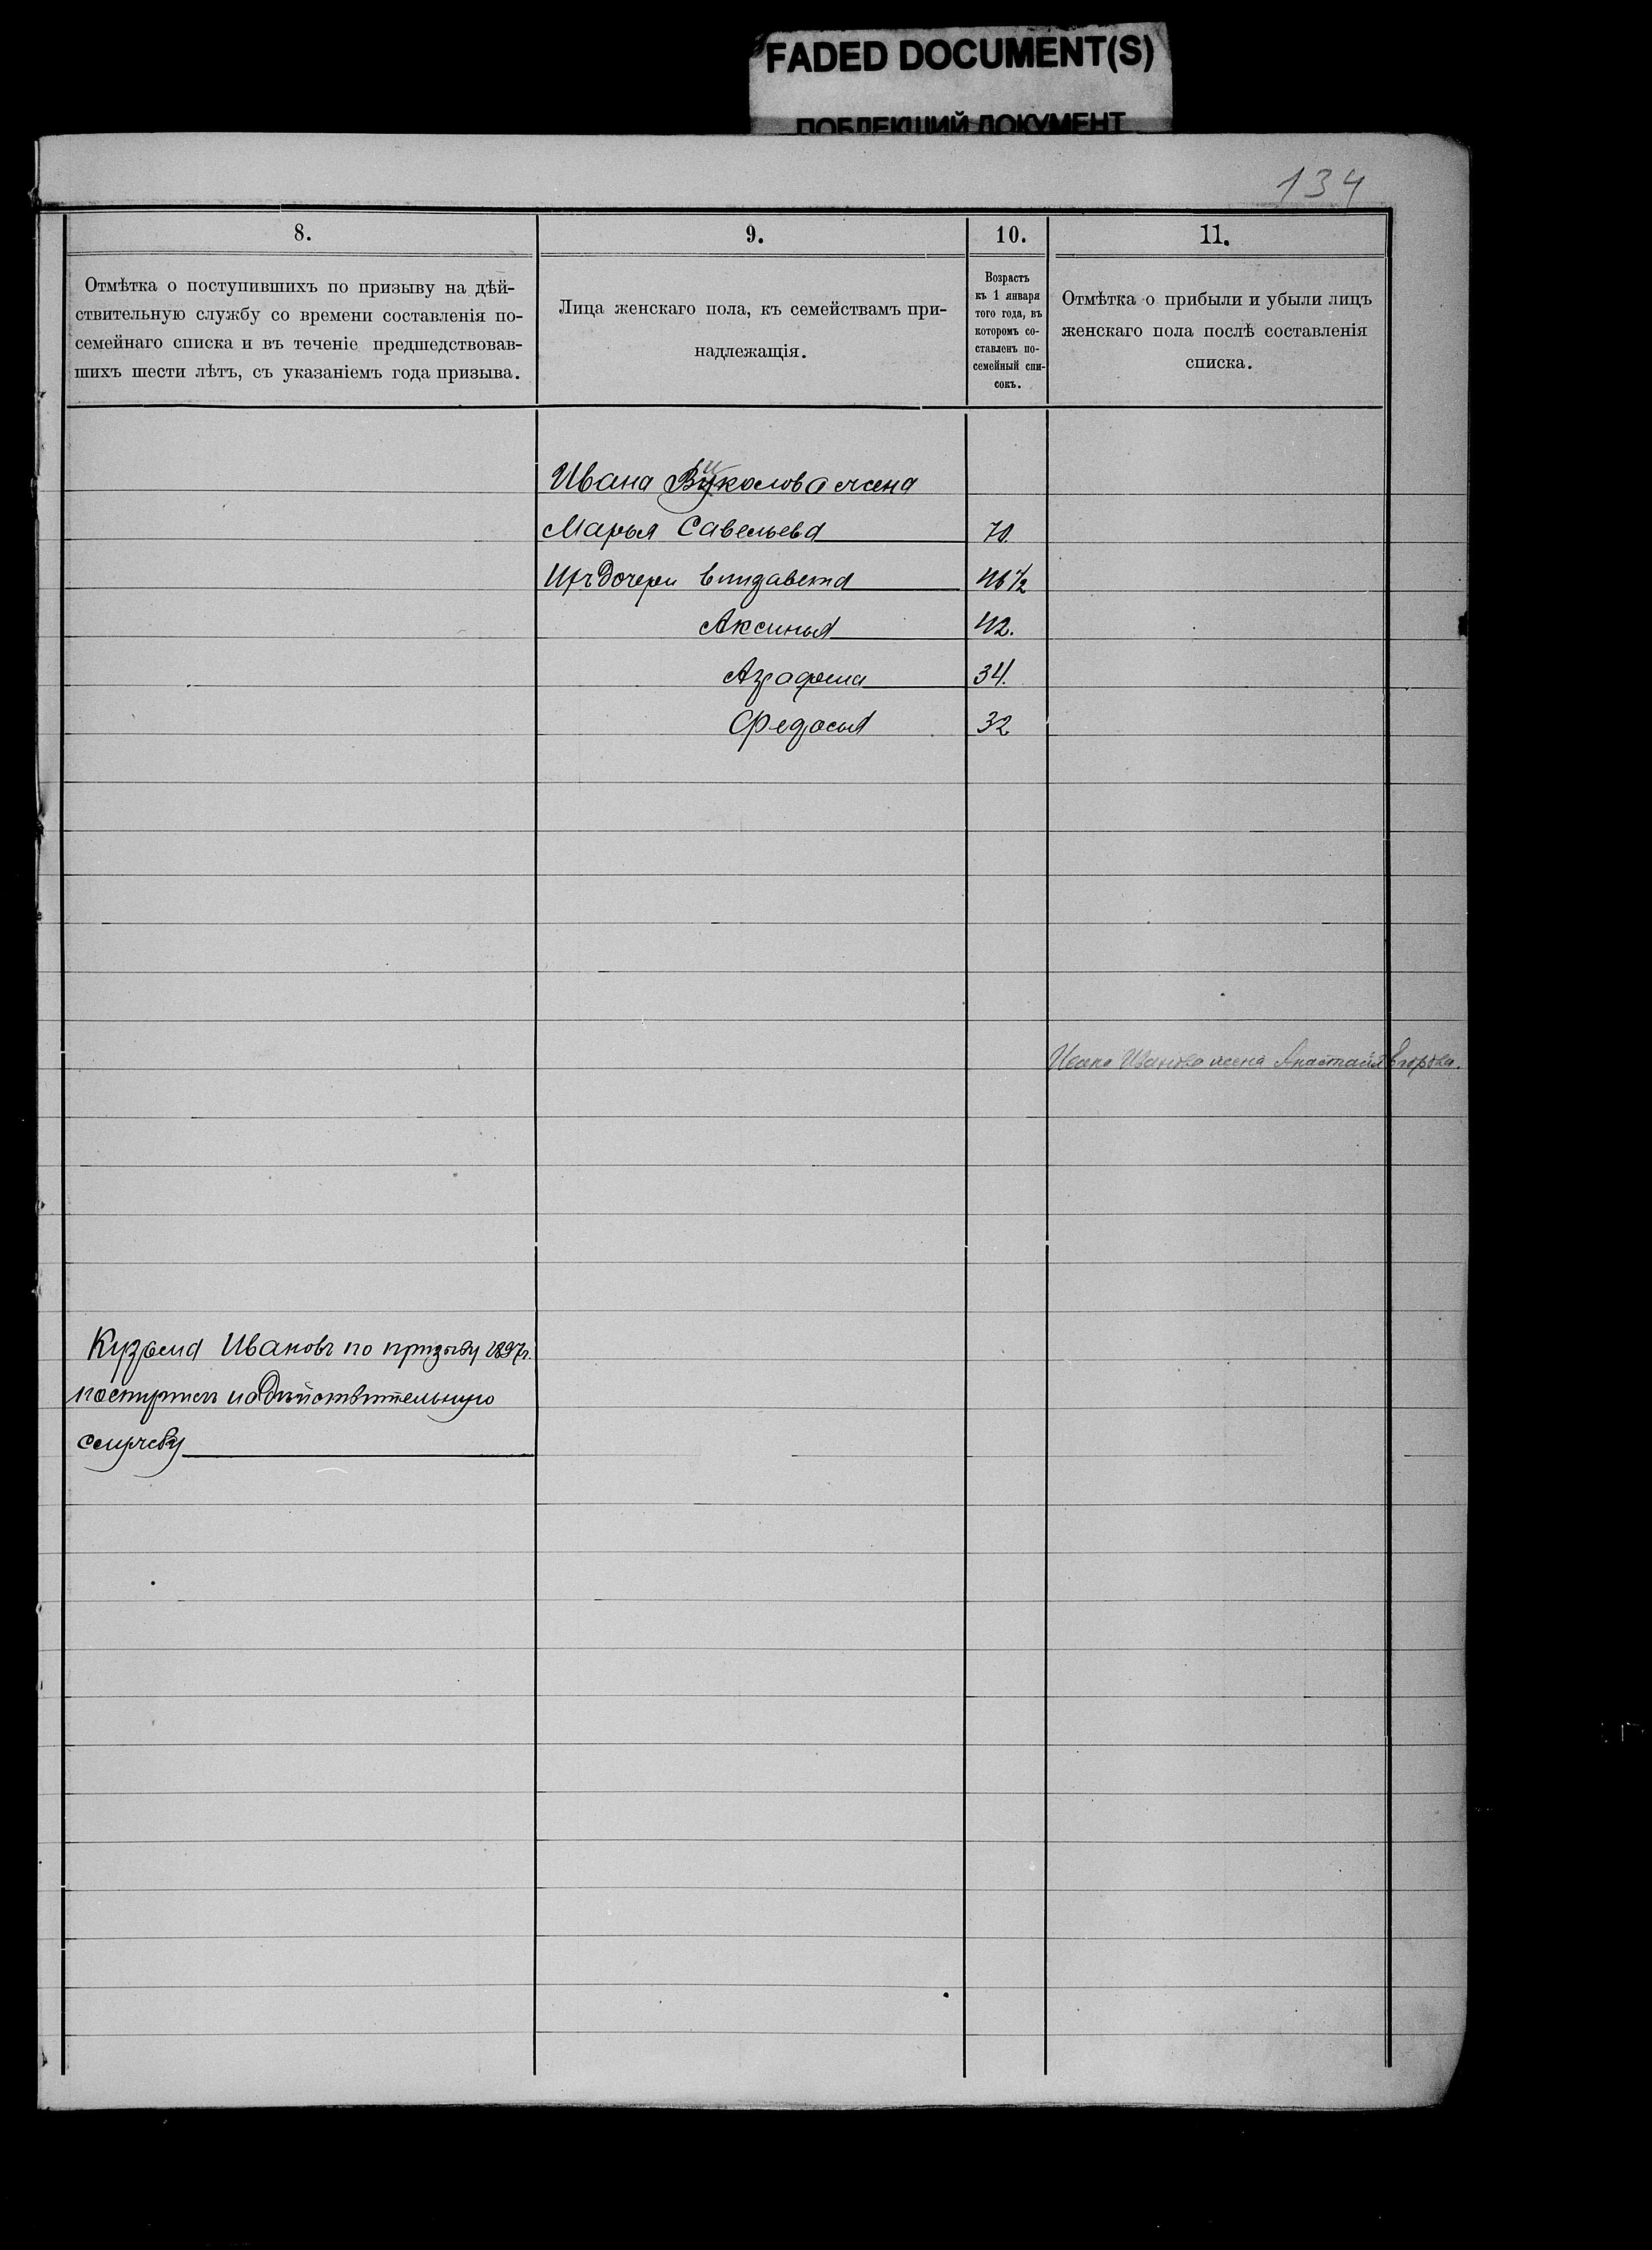 FADED DOCUMENT(S)
ПОБЛЕКШИЙ ДОКУМЕНТ
134
8.
9.
10.
11.
Отмѣтка о поступившихъ по призыву на дѣй-
ствительную службу со времени составленія по-
семейнаго списка и въ теченіе предшедствовав-
шихъ шести лѣтъ, съ указаніемъ года призыва.
Лица женскаго пола, къ семействамъ при-
надлежащія.
Возрастъ
къ 1 января
того года, въ
которомъ со-
ставленъ по-
семейный спи-
сокъ.
Отмѣтка о прибыли и убыли лицъ
женскаго пола послѣ составленія
списка.
Ивана Вуколова жена
Марья Савельева 70.
Ихъ дочери Елизавета 46 1/2
Аксинья 42.
Аграфена 34.
Федосья 32
Ивана Иванова жена Анастасія Егорова.
Кузьма Ивановъ по призыву 1897 г.
поступилъ на дѣйствительную
службу